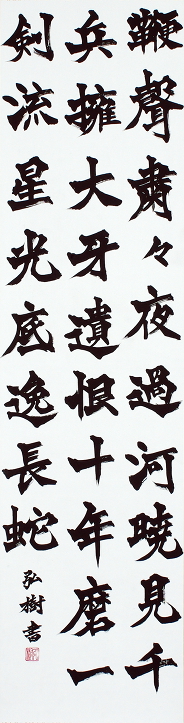 鞭聲粛々夜過河曉見千
兵擁大牙遺恨十年磨一
剣流星光底逸長蛇
弘樹書